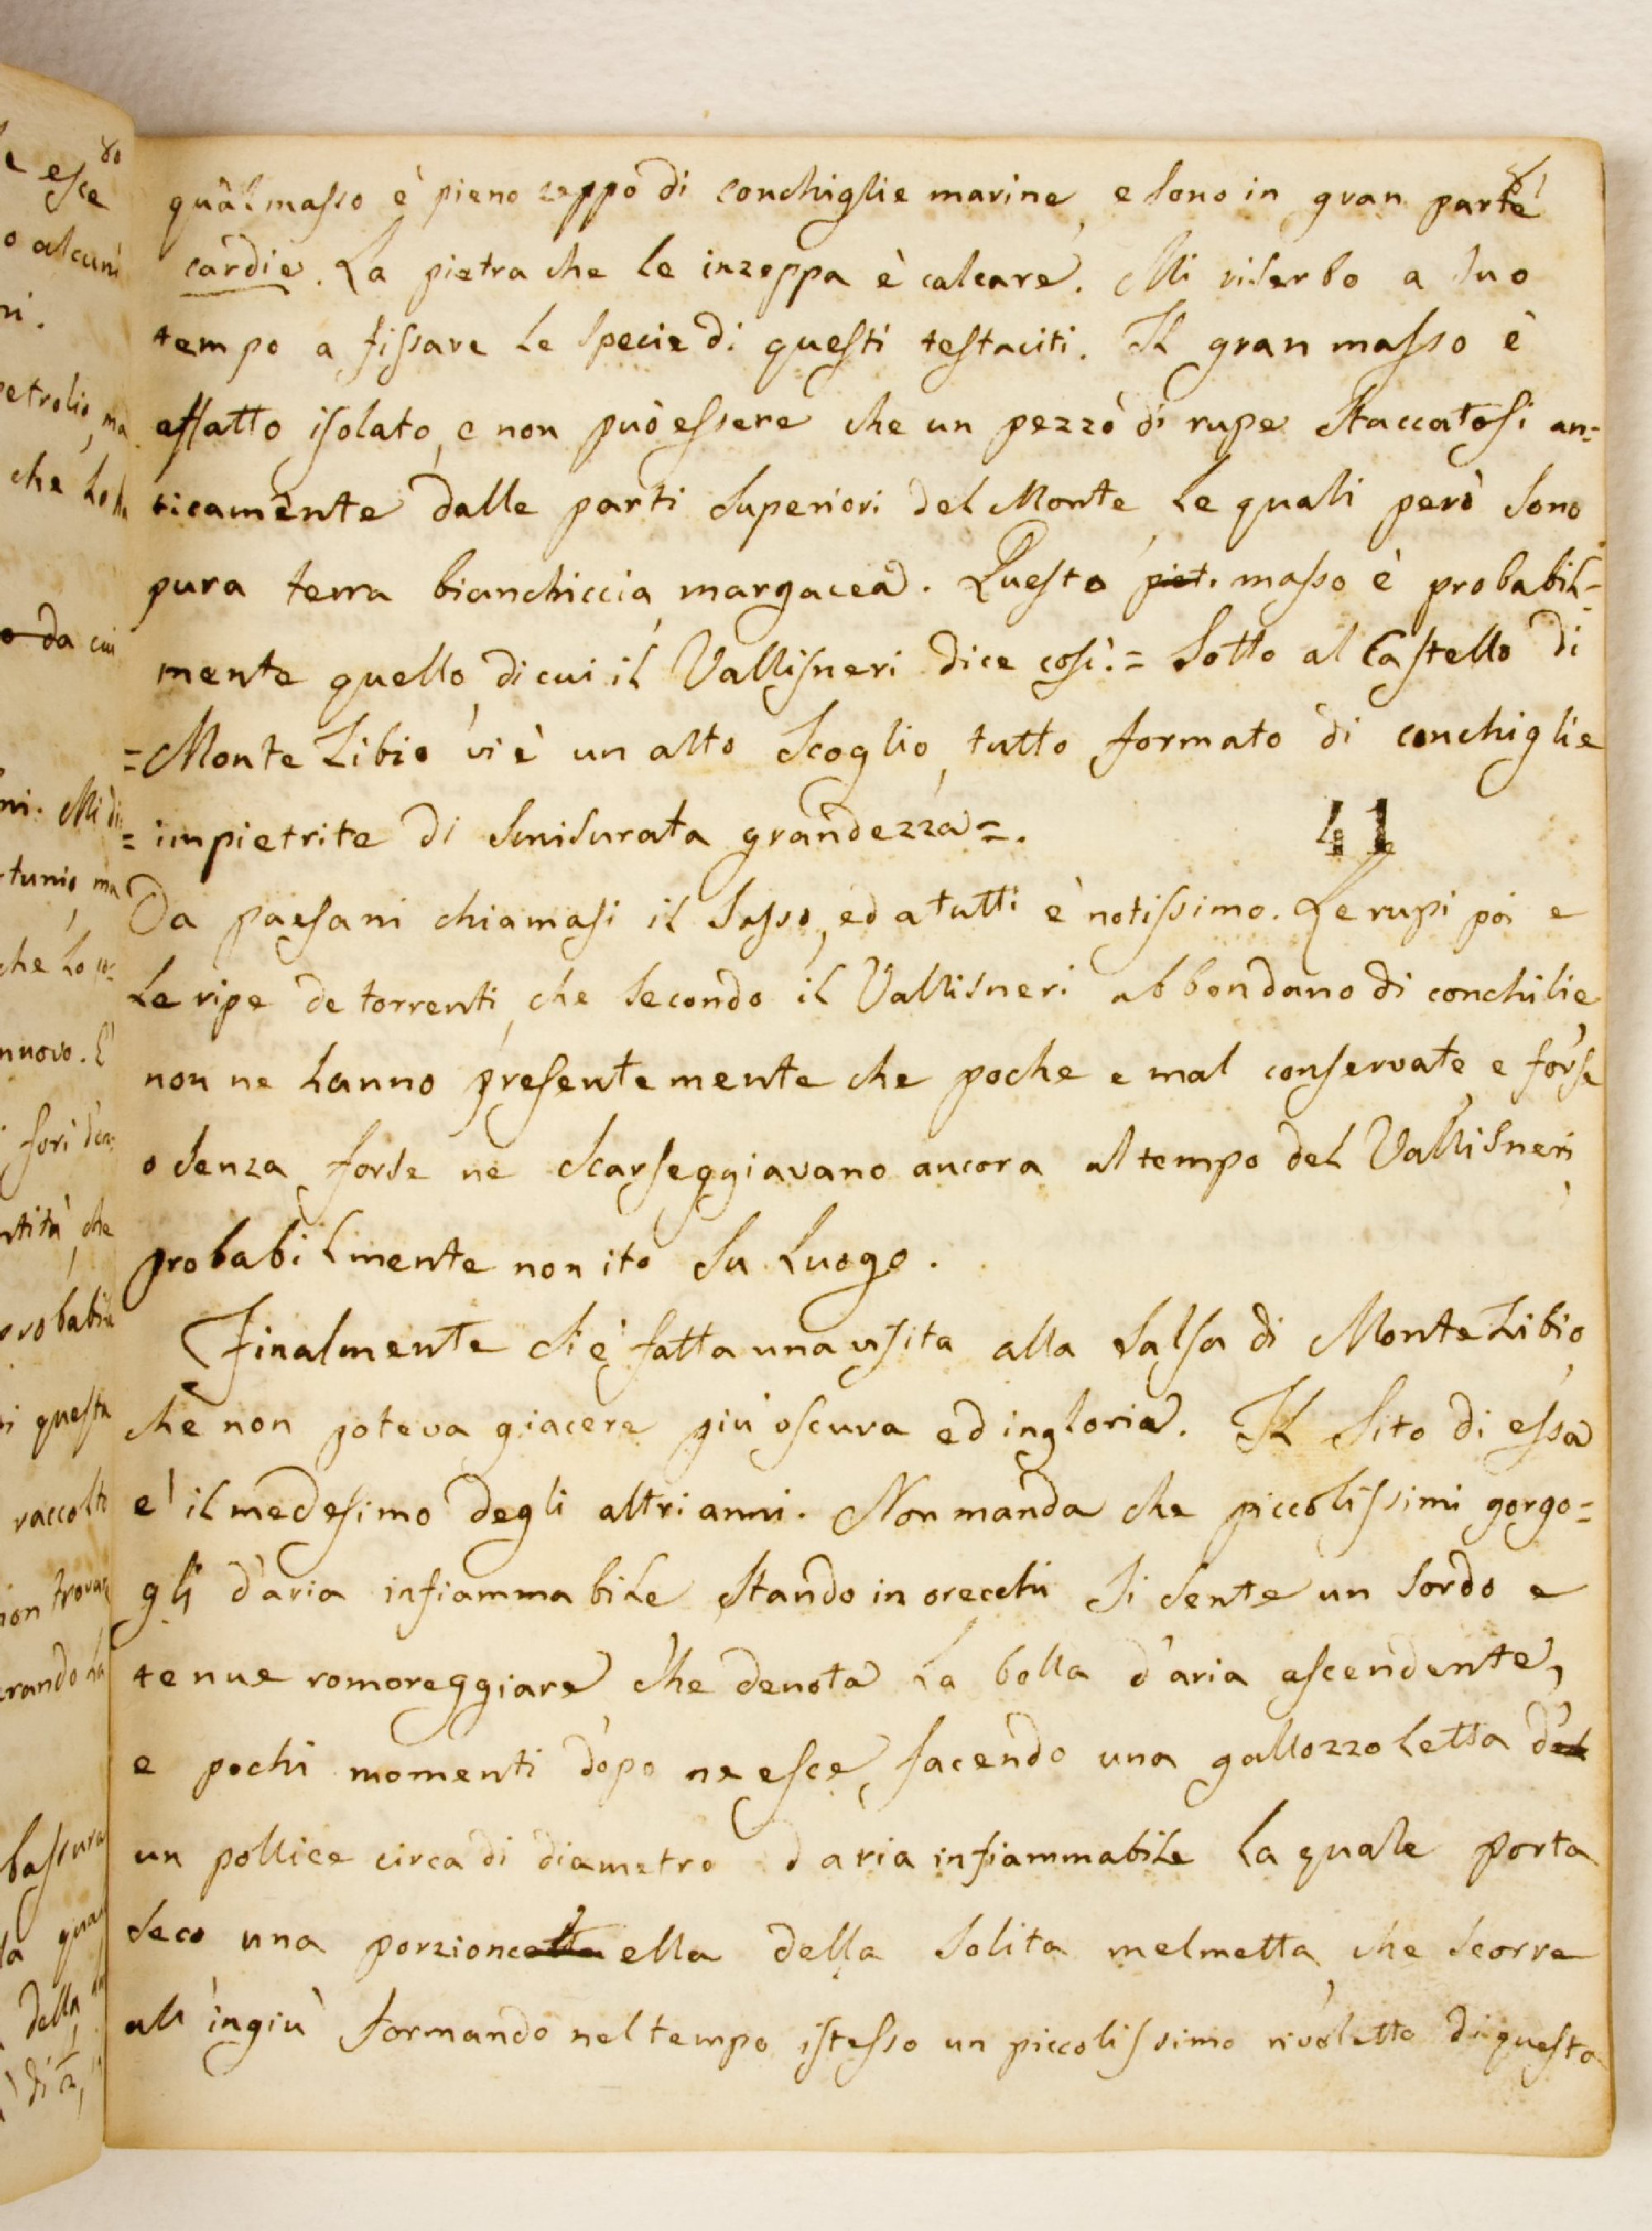 qual masso è pieno zeppo di conchiglie marine, e sono in gran parte
cardie. La pietra che le inzeppa è calcare. Mi riserbo a suo
tempo a fissare le specie di questi testaciti. Il gran masso è
affatto isolato, e non può essere che un pezzo di rupe staccatosi an=
ticamente dalle parti superiori del Monte, le quali però sono
pura terra bianchiccia, margacea. Questo piet. masso è probabil=
mente quello, di cui il Vallisneri dice così: = Sotto al Castello di
= Monte Zibio vi è un alto scoglio, tutto formato di conchiglie
= impietrite di smisurata grandezza =.
41
Da paesani chiamasi il Sasso, ed a tutti è notissimo. Le rupi poi e
le ripe de torrenti, che secondo il Vallisneri abbondano di conchilie,
non ne hanno presentemente che poche e mal conservate, e forse
o senza forse ne scarseggiavano ancora al tempo del Vallisneri,
probabilmente non ito su luogo.
Finalmente si è fatta una visita alla salsa di Monte Zibio,
che non poteva giacere più oscura ed ingloria. Il sito di essa
e' il medesimo degli altri anni. Non manda che piccolissimi gorgo=
gli d'aria infiammabile. Stando in orecchi si sente un sordo e
tenue romoreggiare che denota la bolla d'aria ascendente,
e pochi momenti dopo ne esce, facendo una gallozzoletta del
un pollice circa di diametro d'aria infiammabile la quale porta
seco una porzioncetta ella della solita melmetta, che scorre
all'ingiù formando nel tempo istesso un piccolissimo rivoletto di questa